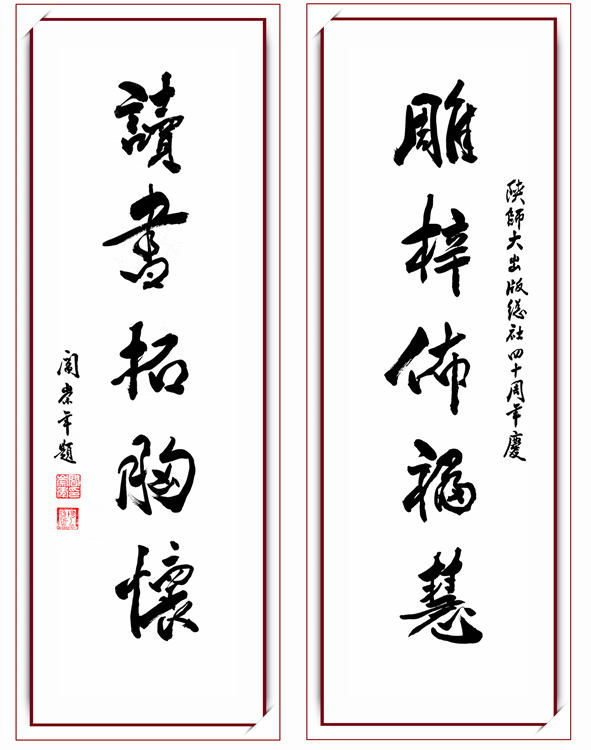 陝師大出版總社四十周年慶
雕梓佈福慧
讀書拓胸懷
閻崇年題